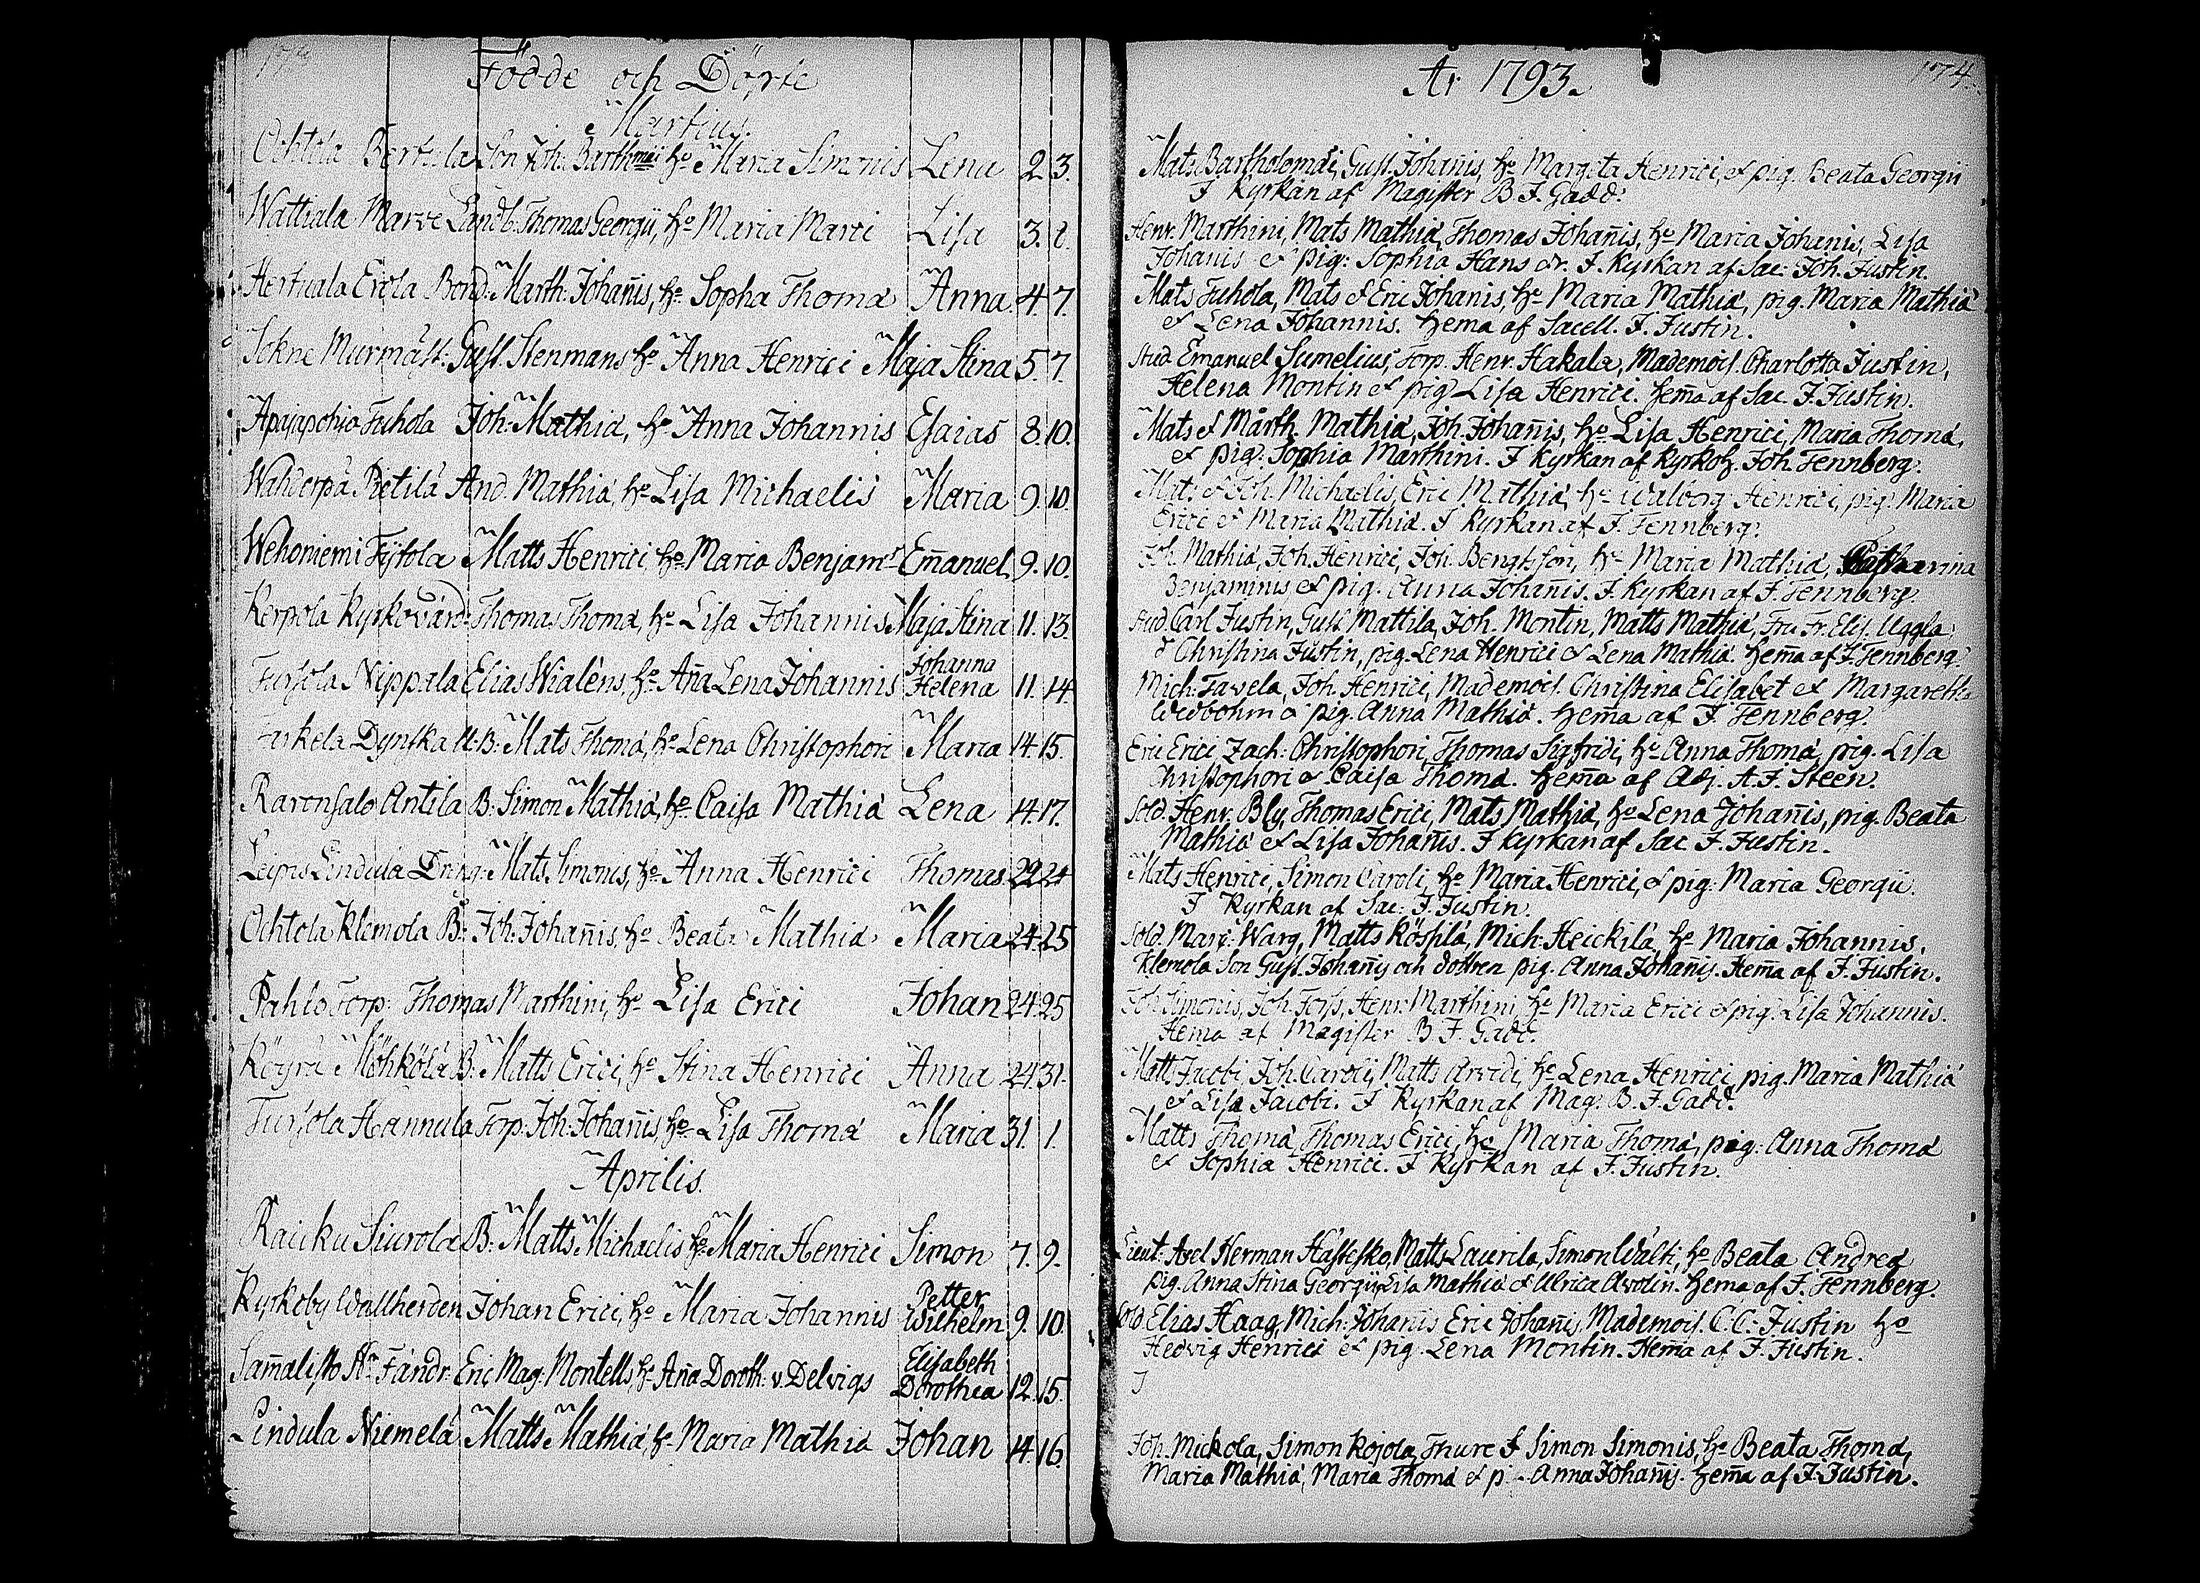 Födde och Döpte
Martius.
Ochtila Bertula Son Joh: Bartholmæi hu Maria Simonis Lena 2 3.
Wattiala Marve Landb: Thomas Georgii, hu Maria Marci Lisa 3. 8.
Hertuala Erola Bond: Marth: Johañis, hu Sopha Thomæ Anna 4. 7.
Tokne Murmäst: Gust. Stenmans hu Anna Henrici Maja Stina 5. 7.
Apajapohja Juhola Joh: Mathiæ, hu Anna Johannis Esaias 8. 10.
Wahderpä Pietilä And. Mathiæ, hu Lisa Michaelis Maria 9. 10.
Wehoniemi Tyfola Matts Henrici, hu Maria Benjam: Em̃anuel 9. 10.
Kerpola Kyrkovärd: Thomas Thomæ, hu Lisa Johannis Maja Stina 11. 13.
Tursola Nippala Elias Wialéns, hu Añа Lena Johannis Johanna Helena 11. 14.
Dynska B: Mats Thomæ, hu Lena Christophori Maria 14. 15.
Ravensalo Antila B. Simon Mathiæ, hu Caisa Mathiæ Lena 14. 17.
Leipis Lindula Dräng: Mats Simonis, hu Anna Henrici Thomas 22 24
Ochtola Klemola B: Joh: Johañis, hu Beata Mathiæ Maria 24. 25
Pahlo Torp: Thomas Marthini, hu Lisa Erici Johan 24. 25
Köyrä Möhkölä B: Matts Erici, hu Stina Henrici Anna 24. 31.
Tursola Hannula Torp: Joh: Johañis, hu Lisa Thomæ Maria 31. 1.
Aprilis.
Raicku Siurola B: Matts Michaelis hu Maria Henrici Simon 7. 9.
Kyrkoby Wallherden Johan Erici, hu Maria Johannis Petter Wilhelm 9. 10.
Sam̃alisto Hr Fändr: Eric Mag: Montells, hu Aña Doroth: v. Delvigs Elisabeth Dorothea 12. 15.
Lindula Niemelä Matts Mathiæ, hu Maria Mathiæ Johan 14. 16.
Ar 1793.
174.
Mats Bartholomæi, Gust. Johañis, hu Margeta Henrici, & pig. Beata Georgii
I Kyrkan af Magister B. J. Gadd.
Henr. Marthini, Mats Mathiæ, Thomas Johañis, hu Maria Johanis, Lisa
Johanis & pig: Sophia Hans dr. I Kyrkan af Sac: Joh. Justin.
Mats Juhola, Mats & Eric Johanis, hu Maria Mathiæ, pig. Maria Mathiæ
& Lena Johannis. Hema af Sacell. J. Justin.
Stud. Emanuel Sumelius, Torp. Henr. Hakala, Mademois. Charlotta Justin,
Helena Montin & pig Lisa Henrici. Hem̃a af Sac. J. Justin.
Mats & Marth. Mathiæ, Joh. Johañis, hu Lisa Henrici, Maria Thomæ,
& pig. Sophia Marthini. I Kyrkan af Kyrkoh. Joh. Tennberg.
Mat: & Joh. Michaelis, Eric Mathiæ, hu Walborg Henrici, pig. Maria
Erici & Maria Mathiæ. I Kyrkan af J. Tennberg.
Joh. Mathiæ, Joh. Henrici, Joh. Bengtsson, hu Maria Mathiæ, Catharina
Benjaminis & pig. Anna Johañis. I Kyrkan af J. Tennberg.
Stud. Carl Justin, Gust Mattila, Joh. Montin, Matts Mathiæ, Fru Fr. Elis. Uggla,
& Christina Justin, pig. Lena Henrici & Lena Mathiæ. Hem̃a af J. Tennberg.
Mich. Tavela, Joh. Henrici, Mademois. Christina Elisabet & Margareth
Wedbohm & pig. Anna Mathiæ. Hem̃a af J. Tennberg.
Eric Erici Zach: Christophori, Thomas Sigfridi, hu Anna Thomæ, pig. Lisa
Christophori & Caisa Thomæ. Hem̃a af Adj. A. J. Steen.
Sold. Henr. Bly, Thomas Erici, Mats Mathiæ, hu Lena Johañis, pig. Beata
Mathiæ & Lisa Johañis. I Kyrkan af Sac J. Justin.
Mats Henrici, Simon Caroli, hu Maria Henrici, & pig: Maria Georgii.
I Kyrkan af Sac: J. Justin.
Sold. Marc: Warg, Matts Köspilä, Mich: Heickilä, hu Maria Johannis.
Klemola Son Gust. Johañis och dottren pig. Anna Johañis. Hem̃a af J. Justin.
Joh Simonis, Joh. Forss, Henr. Marthini, hu Maria Erici & pig. Lisa Johannis.
Hema af Magister B. J. Gadd.
Matts Jacobi, Joh. Caroli, Matts Arvidi, hu Lena Henrici, pig. Maria Mathiæ
& Lisa Jacobi. I Kyrkan af Mag. B. J. Gadd.
Matts Thomæ, Thomas Erici, hu Maria Thomæ, pig: Anna Thomæ
& Sophia Henrici. I Kyrkan af J. Justin.
Lieut. Axel Herman Hästesko, Matts Laurila, Simon Wälti, hu Beata Andreæ
pig. Anna Stina Georgii, Lisa Mathiæ & Ulrica Avolin. Hema af J. Tennberg.
Sold Elias Haag, Mich: Johañis Eric Johañis, Mademois. C. C. Justin hu
Hedvig Henrici & pig. Lena Montin. Hem̃a af J. Justin.
J
Joh. Mickola, Simon Kojola, Thure & Simon Simonis, hu Beata Thomæ,
Maria Mathiæ, Maria Thomæ & p. Anna Johañis. Hem̃a af J. Justin.